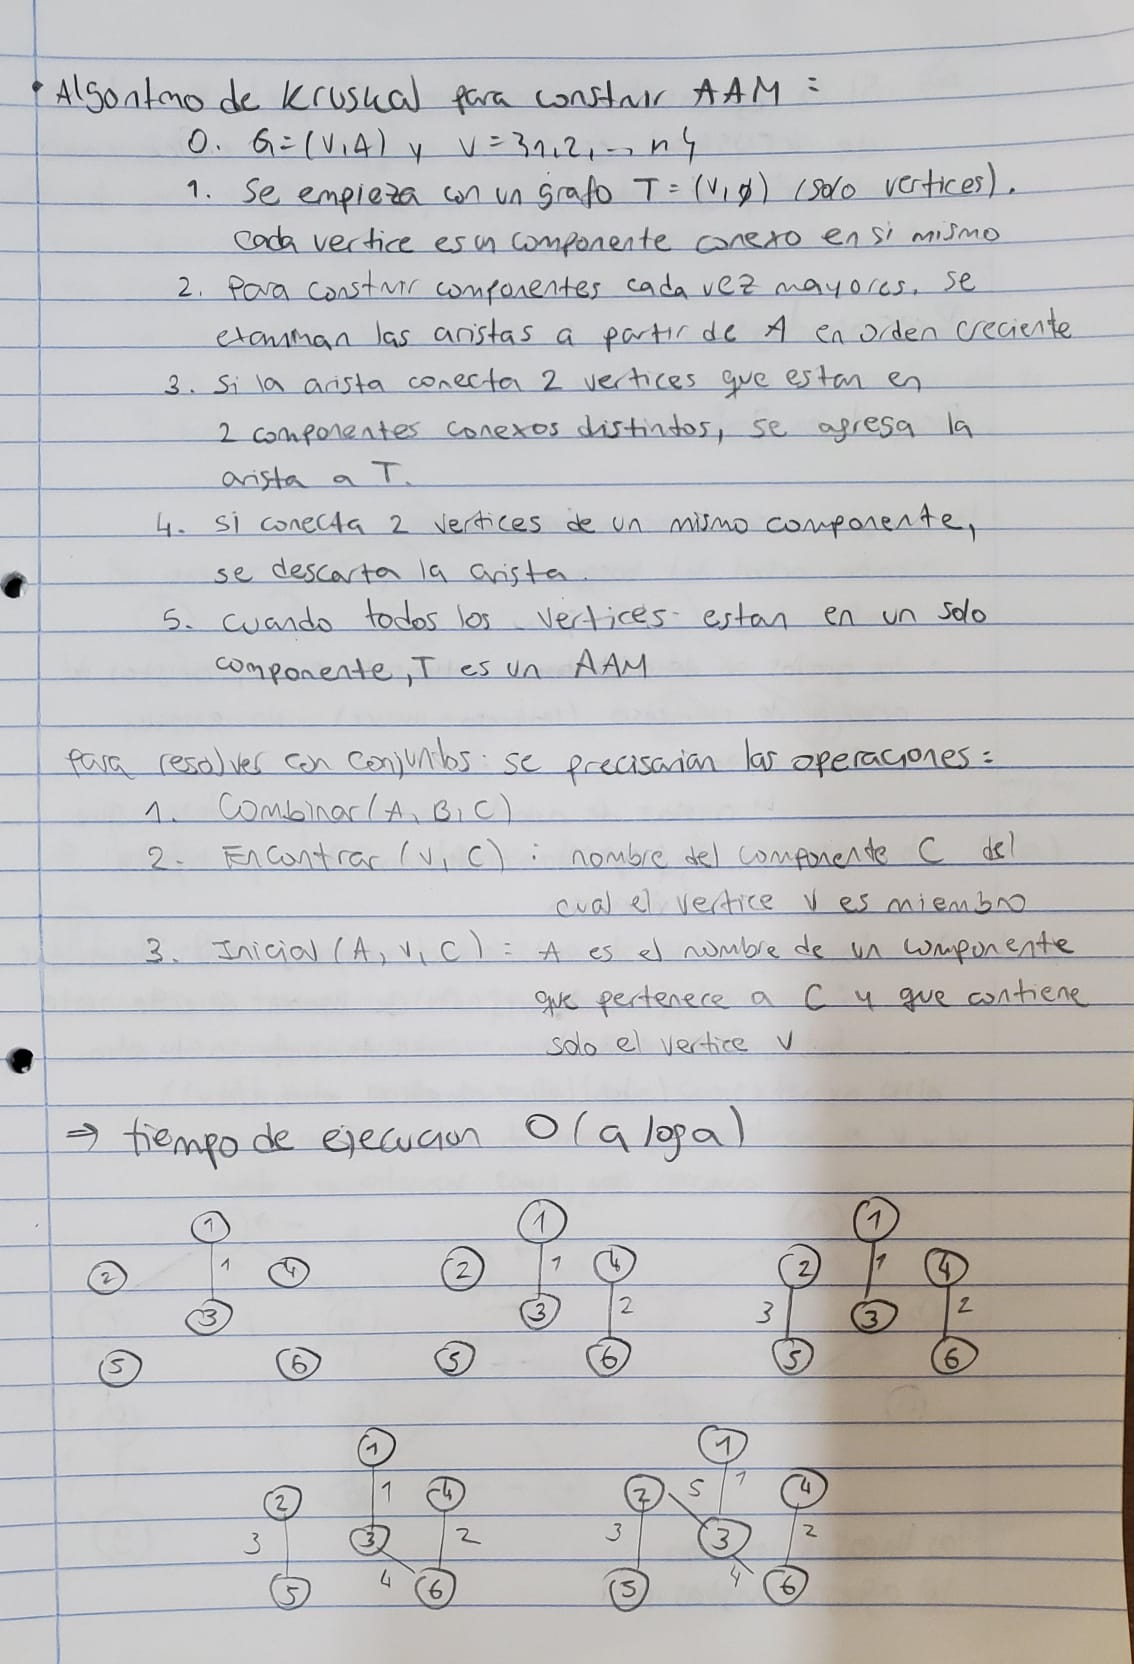 • Algoritmo de Kruskal para construir AAM:
0. G=(V,A) y V={1,2,... n}
1. Se empieza con un grafo T=(V,∅) (solo vertices).
Cada vertice es un componente conexo en si mismo
2. Para construir componentes cada vez mayores, se
examinan las aristas a partir de A en orden creciente
3. Si la arista conecta 2 vertices que estan en
2 componentes conexos distintos, se agrega la
arista a T.
4. Si conecta 2 vertices de un mismo componente,
se descarta la arista.
5. Cuando todos los vertices estan en un solo
componente, T es un AAM
Para resolver con conjuntos se precisarian las operaciones:
1. Combinar (A, B, C)
2. Encontrar (v, C) : nombre del componente C del
cual el vertice v es miembro
3. Inicial (A, v, C) : A es el nombre de un componente
que pertenece a C y que contiene
solo el vertice v
⇒ tiempo de ejecucion O(a log a)
1 1 1
2 1 4 2 1 4 2 1 4
3 3 2 3 3 2
5 6 5 6 5 6
1 1
2 1 4 2 5 1 4
3 3 2 3 3 2
5 4 6 5 4 6